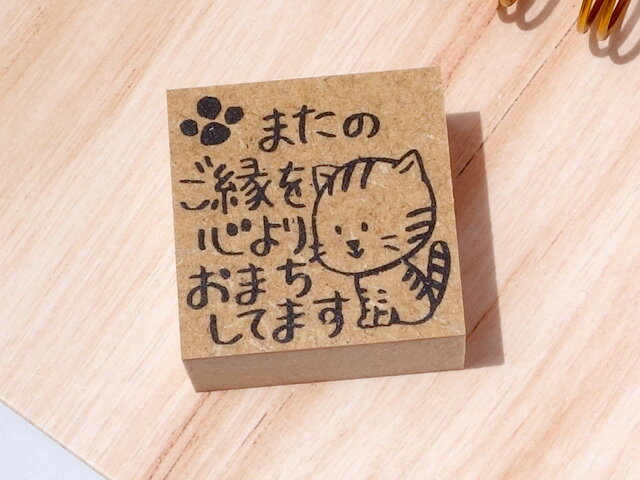 またの
ご縁を
心より
おまち
してます